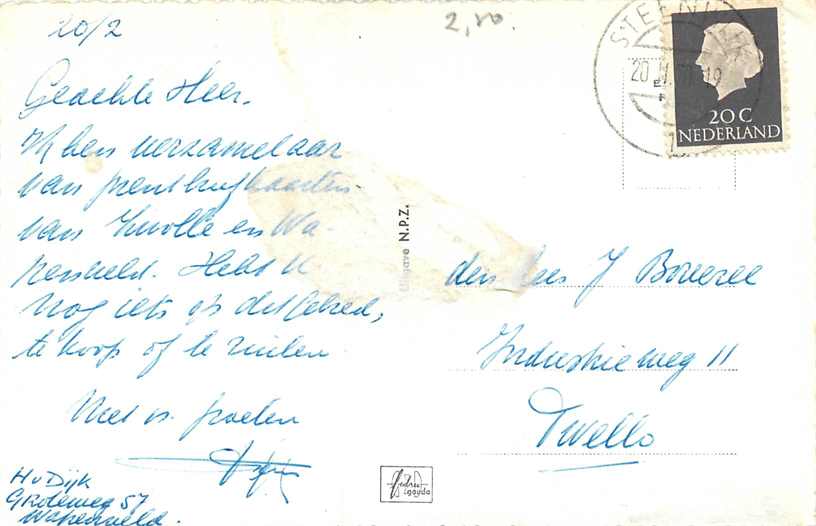 20/2
2,50.
Geachte Heer.
Ik ben verzamelaar
van prentbriefkaarten
van Zwolle en Wa-
penveld. Hebt U
nog iets op dit gebied,
te koop of te ruilen
Met vr. groeten
HvDijk
Groteweg 57
Wapenveld.
Uitgave N.P.Z.
gouda
STEENW
20
19
20 C
NEDERLAND
den heer J
Industrieweg 11
Twello